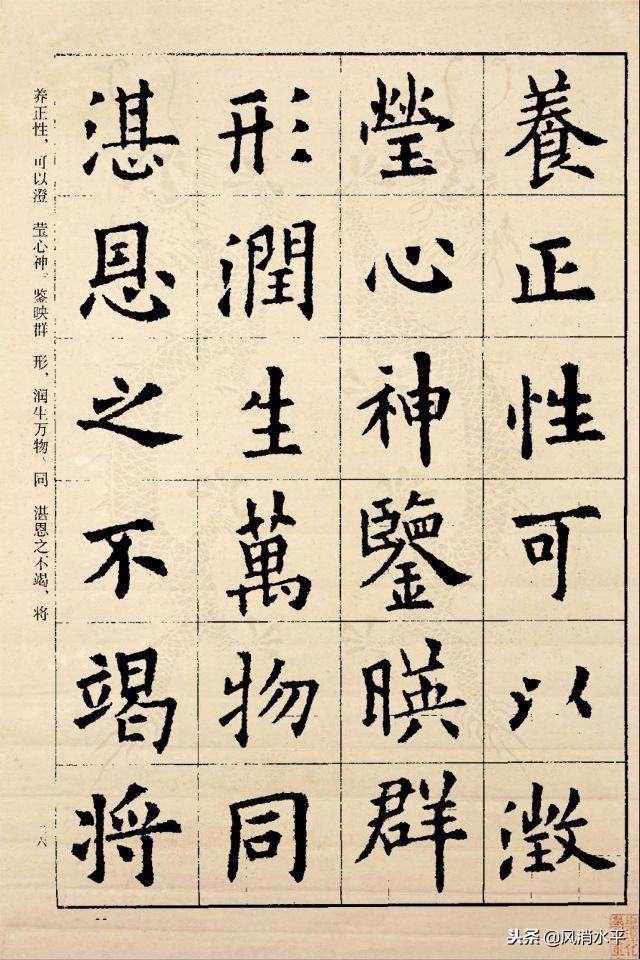 養正性可以澂
瑩心神鑒暎群
形潤生萬物同
湛恩之不竭将
养正性，可以澄　莹心神。鉴映群　形，润生万物，同　湛恩之不竭，将
二六
头条 @风消水平